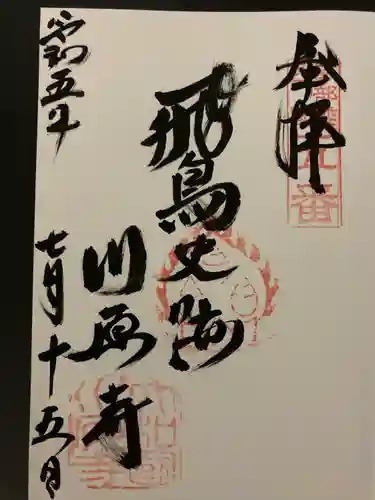 奉拝
飛鳥史跡
川原寺
令和五年
七月十五日